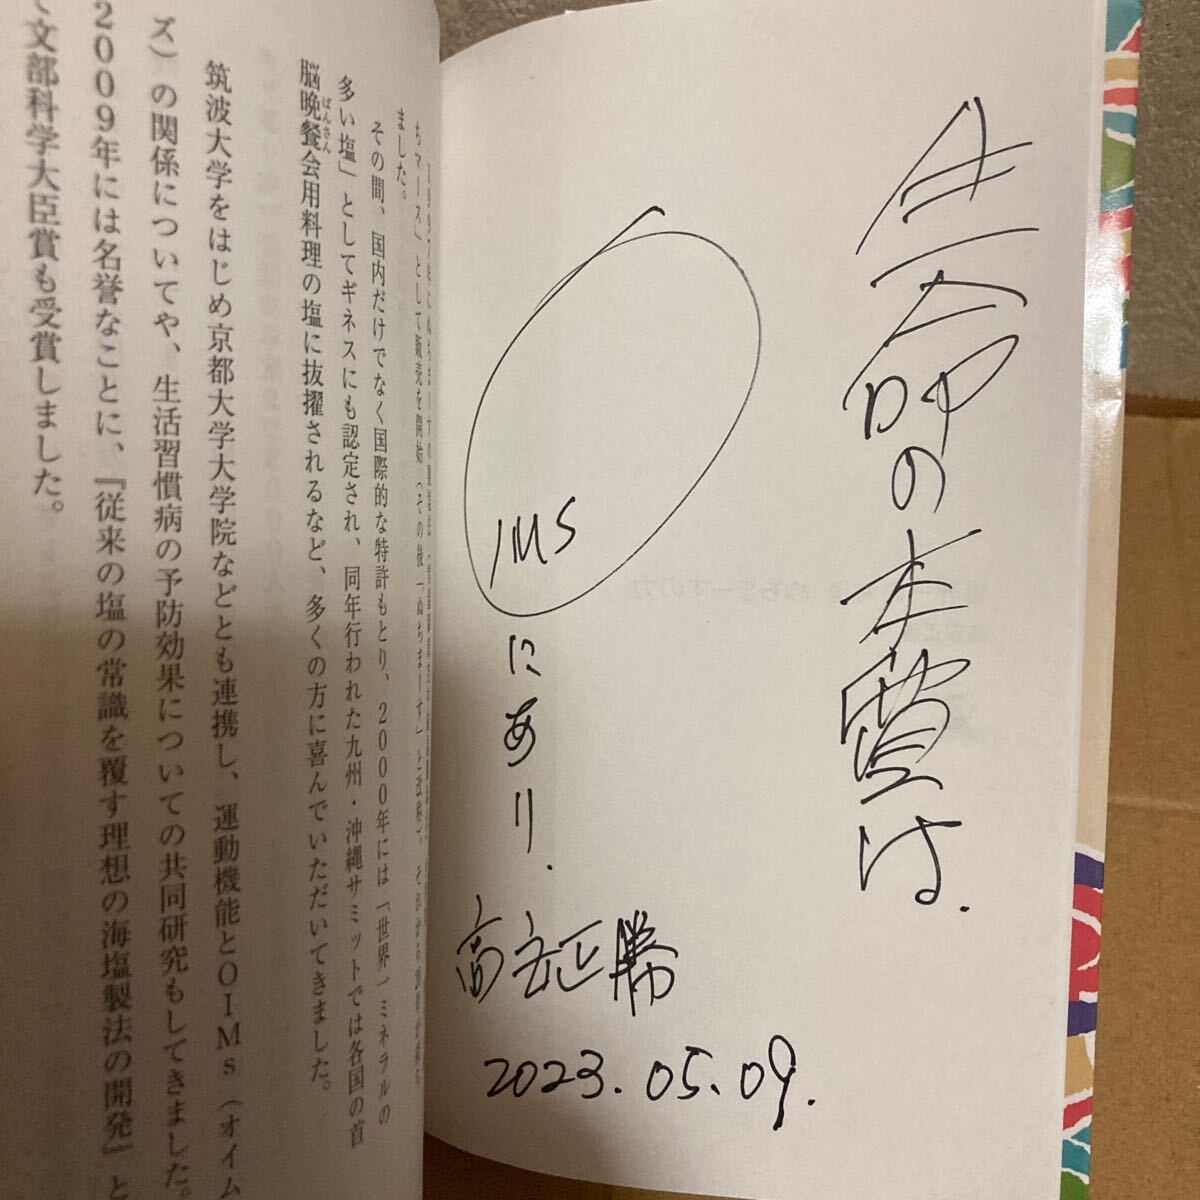 生命の本質は.
IMS
にあり.
高安正勝
2023.05.09.
ちマース」として販売を開始(その後「ぬちまーす」と改称)。それから
ました。
その間、国内だけでなく国際的な特許もとり、2000年には「世界一ミネラルの
多い塩」としてギネスにも認定され、同年行われた九州・沖縄サミットでは各国の首
脳晩餐会用料理の塩に抜擢されるなど、多くの方に喜んでいただいてきました。
ばんさん
筑波大学をはじめ京都大学大学院などとも連携し、運動機能とOIMs(オイム
ズ)の関係についてや、生活習慣病の予防効果についての共同研究もしてきました。
2009年には名誉なことに、『従来の塩の常識を覆す理想の海塩製法の開発』と
て文部科学大臣賞も受賞しました。